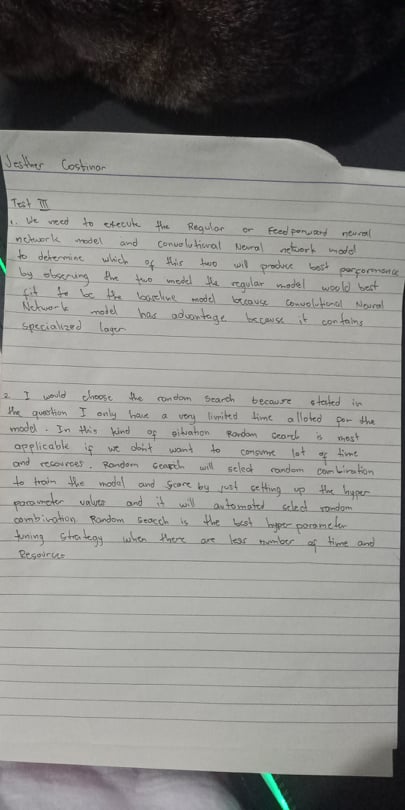 Jesther Cosbinar
Test III
1. We need to execute the Regular or Feedforward neural
network model and convolutional Neural network model
to determine which of this two will produce best performance
by observing the two model the regular model would best
fit to be the baseline model because convolutional Neural
Network model has advantage because it contains
specialized layer
2. I would choose the random search because stated in
the question I only have a very limited time alloted for the
model. In this kind of situation Random Search is most
applicable if we don't want to consume lot of time
and resources. Random search will select random combination
to train the model and score by just setting up the hyper
parameter values and it will automated select random
combination Random Search is the best hyper parameter
tuning strategy when there are less number of time and
Resources